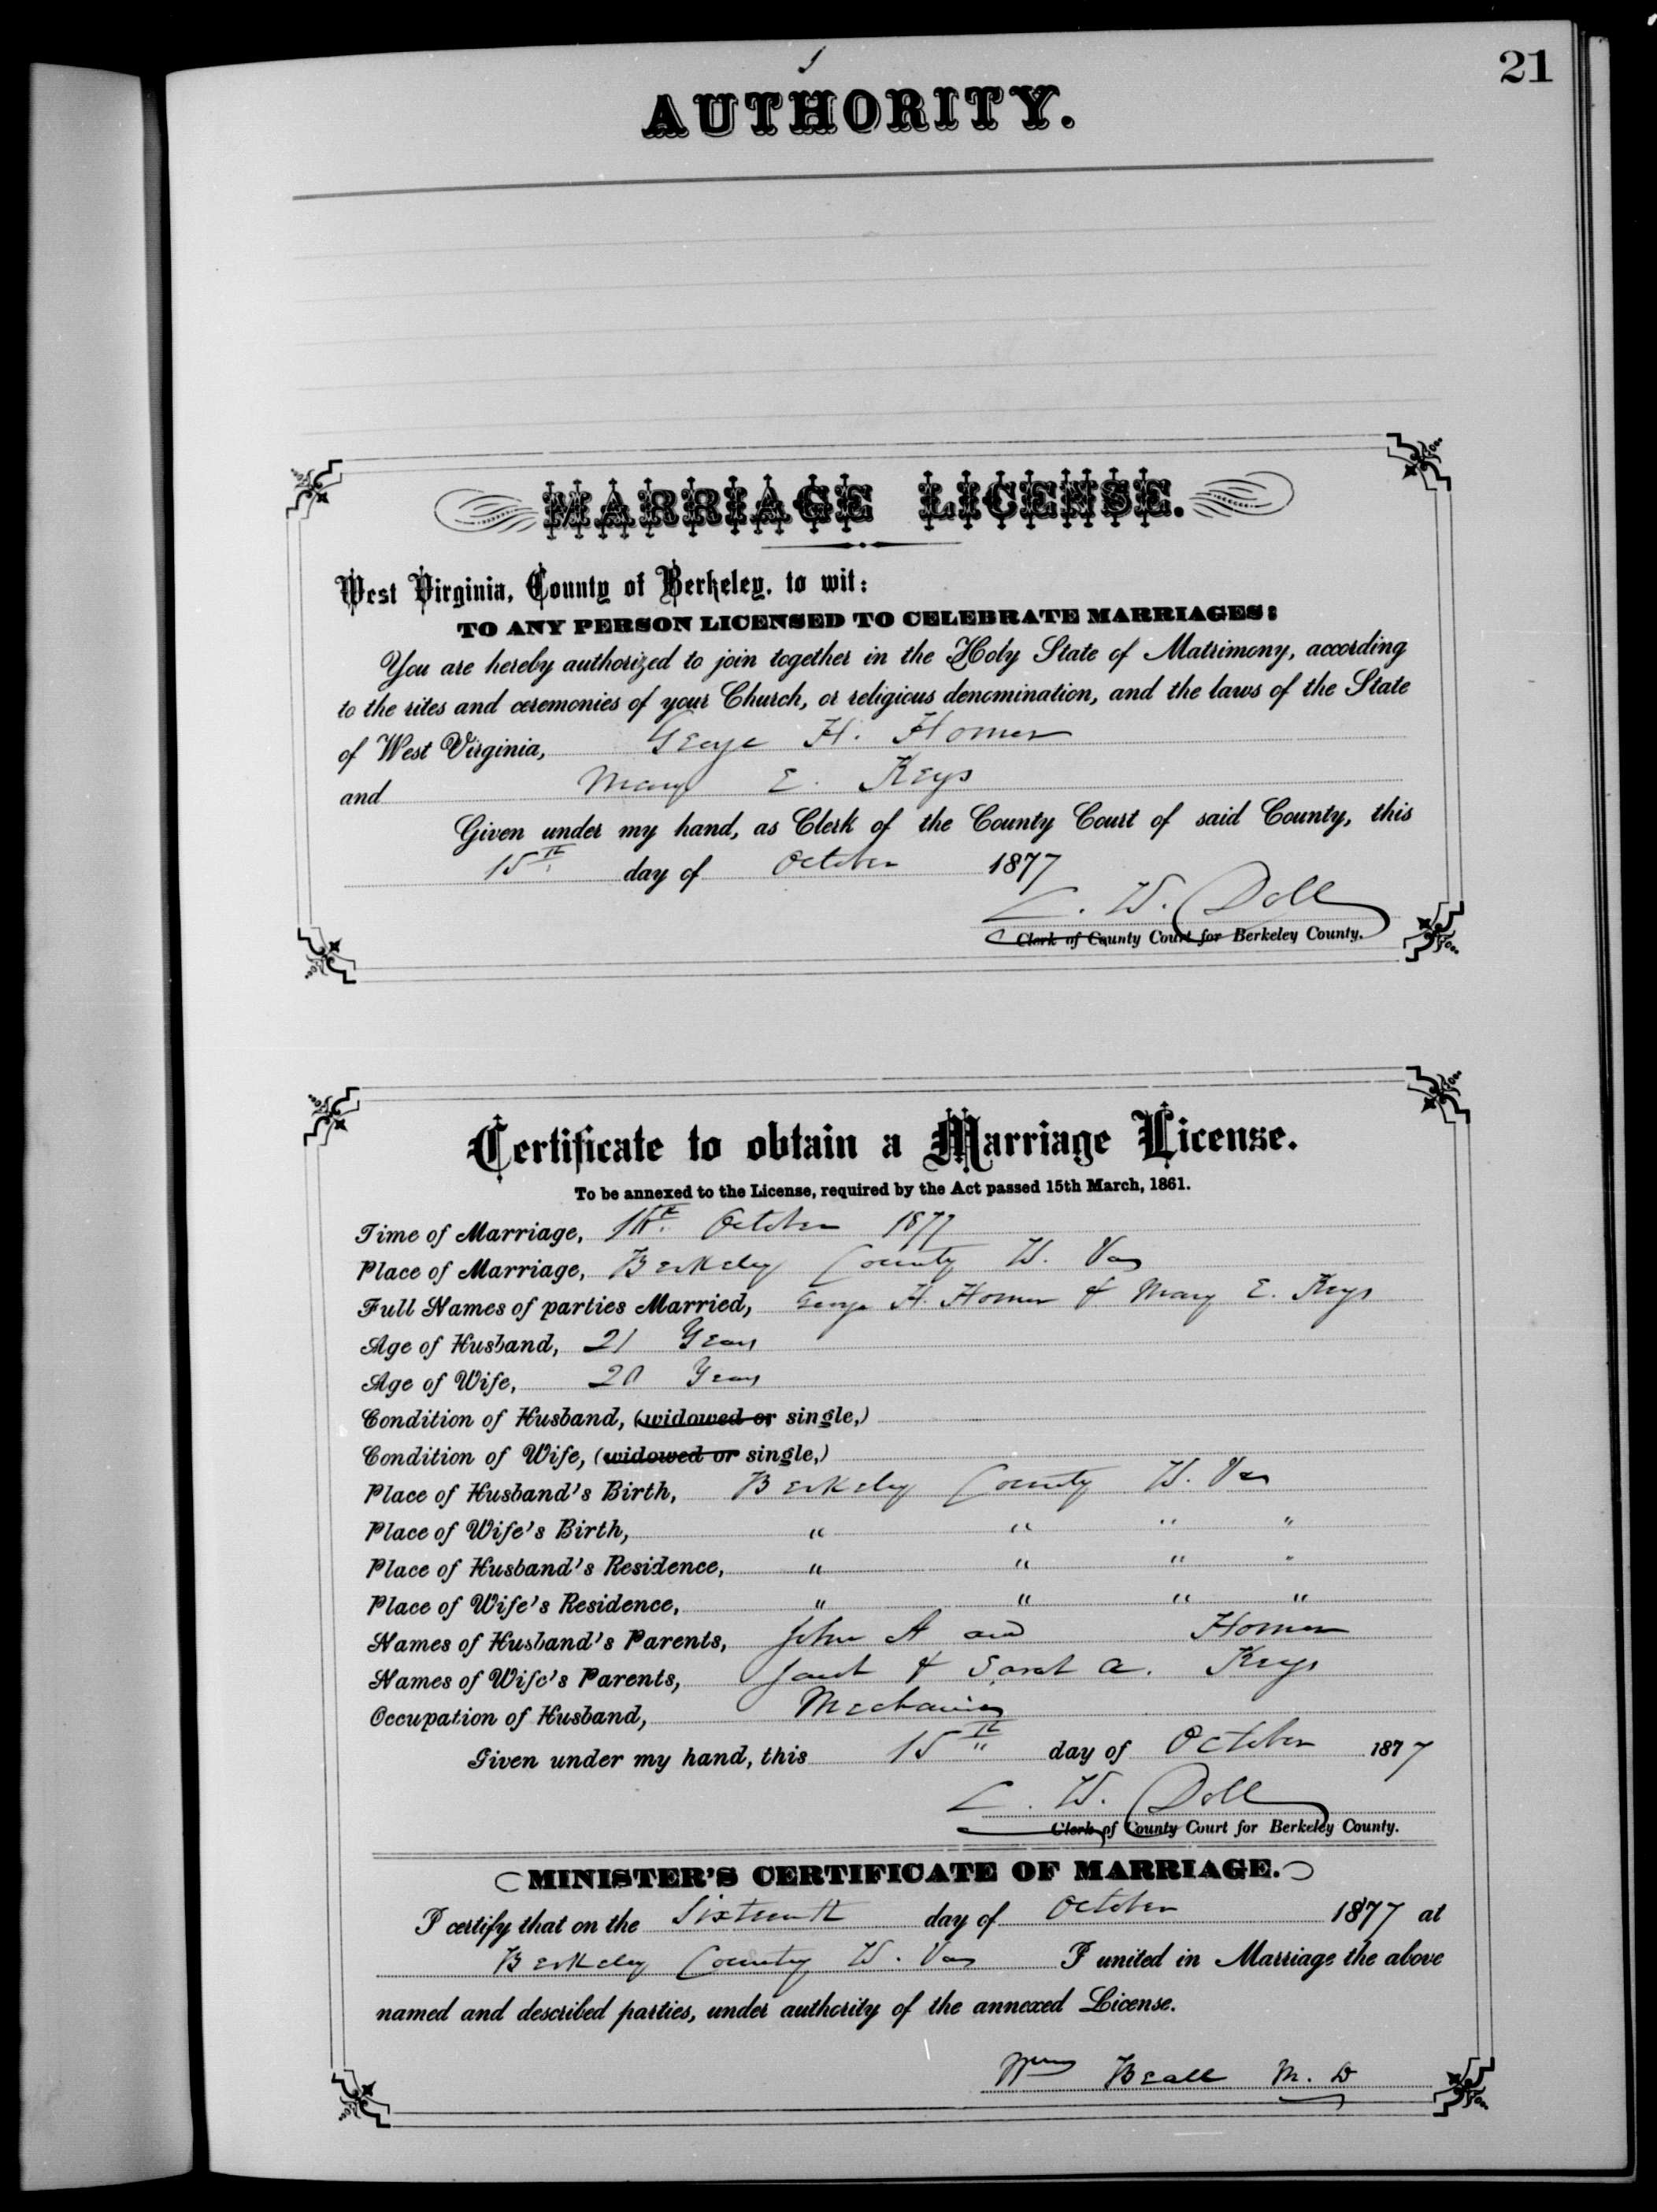 21
AUTHORITY.
MARRIAGE LICENSE.
West Virginia, County of Berkeley, to wit:
TO ANY PERSON LICENSED TO CELEBRATE MARRIAGES:
You are hereby authorized to join together in the Holy State of Matrimony, according
to the rites and ceremonies of your Church, or religious denomination, and the laws of the State
of West Virginia, George H. Homer
and Mary E. Keys
Given under my hand, as Clerk of the County Court of said County, this
15th day of October 1877
C. W. Doll
Clerk of County Court for Berkeley County.
Certificate to obtain a Marriage License.
To be annexed to the License, required by the Act passed 15th March, 1861.
Time of Marriage, October 1877
Place of Marriage, Berkeley County W. Va
Full Names of parties Married, George H. Homer & Mary E. Keys
Age of Husband, 21 Years
Age of Wife, 20 Years
Condition of Husband, (widowed or single,)
Condition of Wife, (widowed or single,)
Place of Husband's Birth, Berkeley County W. Va
Place of Wife's Birth, " " " "
Place of Husband's Residence, " " " "
Place of Wife's Residence, " " " "
Names of Husband's Parents, John A and Homer
Names of Wife's Parents, & Sarah A. Keys
Occupation of Husband, Mechanic
Given under my hand, this 15th day of October 1877
C. W. Doll
Clerk of County Court for Berkeley County.
MINISTER'S CERTIFICATE OF MARRIAGE.
I certify that on the Sixteenth day of October 1877 at
Berkeley County W. Va I united in Marriage the above
named and described parties, under authority of the annexed License.
Wm Beall M. D